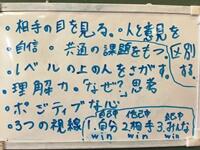 ・相手の目を見る。・人と意見を
・自信・共通の課題をもつ。区別
・レベルの上の人をさがす。する
・理解力・なぜ?思考
・ポジティブな心
・3つの視線 1.自分 2.相手 3.みんな
win win win